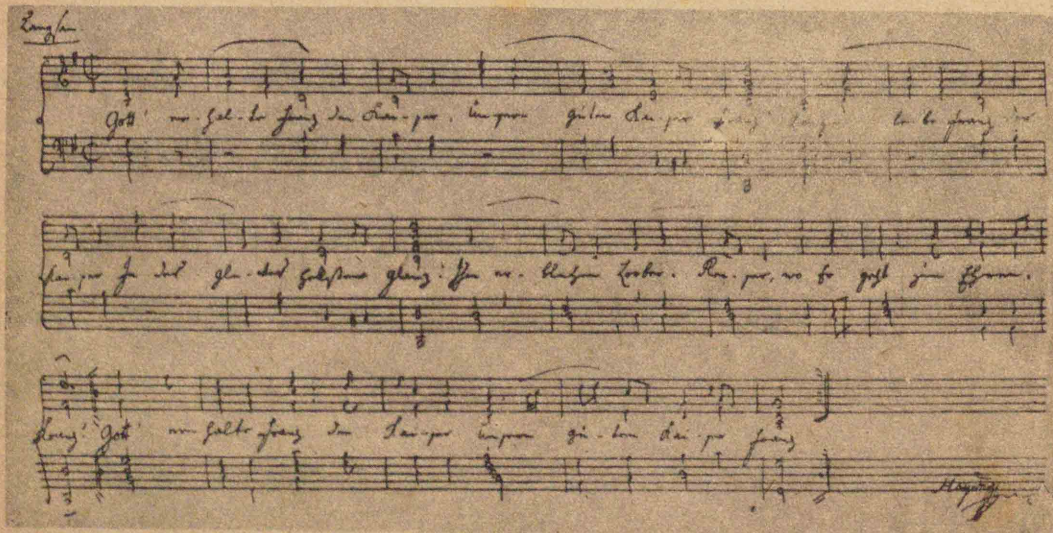 Langsam
Gott! er-hal-te Franz den Kai-ser, Unsern guten Kai-ser Franz! Lange le-be Franz der
Kai-ser In des Glü-ckes hellstem Glanz! Ihm er-blühen Lorber-Rei-ser, wo Er geht zum Ehren-
kranz! Gott! er-halte Franz den Kai-ser Unsern gu-ten Kai-ser Franz
Haydn